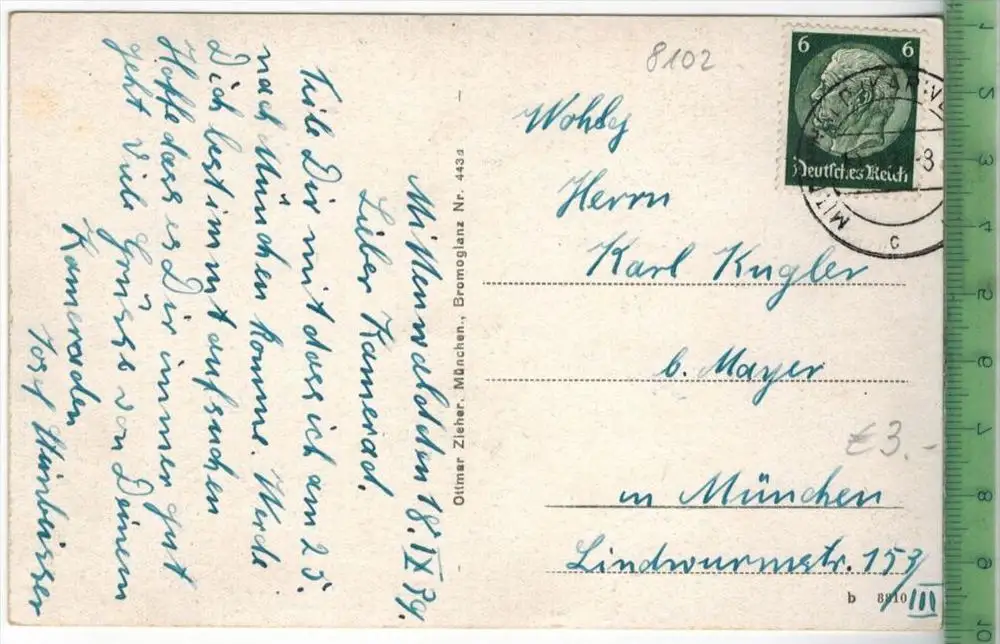 Mittenwald den 18.IX 39.
Lieber Kamerad.
Teile Dir mit dass ich am 25.
nach München komme. Werde
Dich bestimmt aufsuchen
Hoffe dass es Dir immer gut
geht viele Grüsse von Deinem
Kameraden
Josef
Ottmar Zieher, München., Bromoglanz Nr.
8102
6 6
Deutsches Reich
c
Herrn
Karl Kugler
b. Mayer
in München
Lindwurmstr. 159/III
€3.-
b 8810